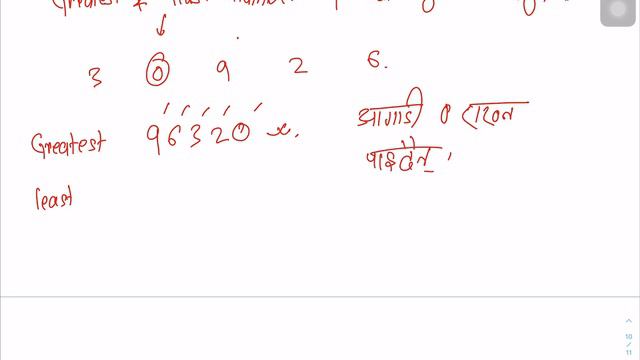 Greatest & least number
3 0 9 2 6.
Greatest 96320
आगाडी 0 राख्न
पाइदैन
least
10
/
11